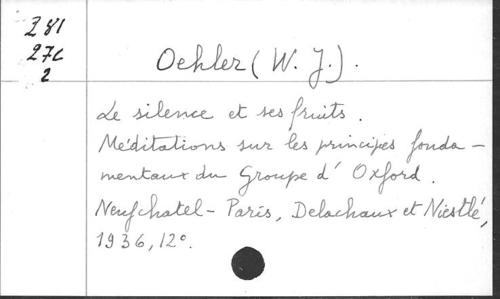 Z 81
27C
2
Oehler (W. J.).
Le silence et ses fruits.
Méditations sur les principes fonda-
mentaux du Groupe d'Oxford.
Neufchatel-Paris, Delachaux et Niestlé,
1936, 12º.